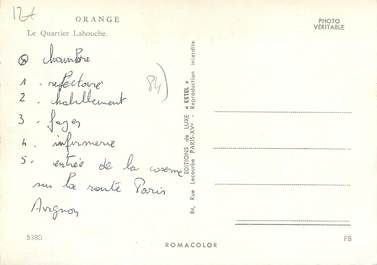 12A
ORANGE
Le Quartier Labouche.
PHOTO
VÉRITABLE
⊗ chambre
1 - refectoire
84)
2 - habillement
3 - foyer
4. infirmerie
5. entrée de la caserne
sur la route Paris
Avignon
ÉDITIONS de LUXE « ESTEL »
84, Rue Lecourbe PARIS-XVe
Reproduction interdite
5380
ROMACOLOR
FB